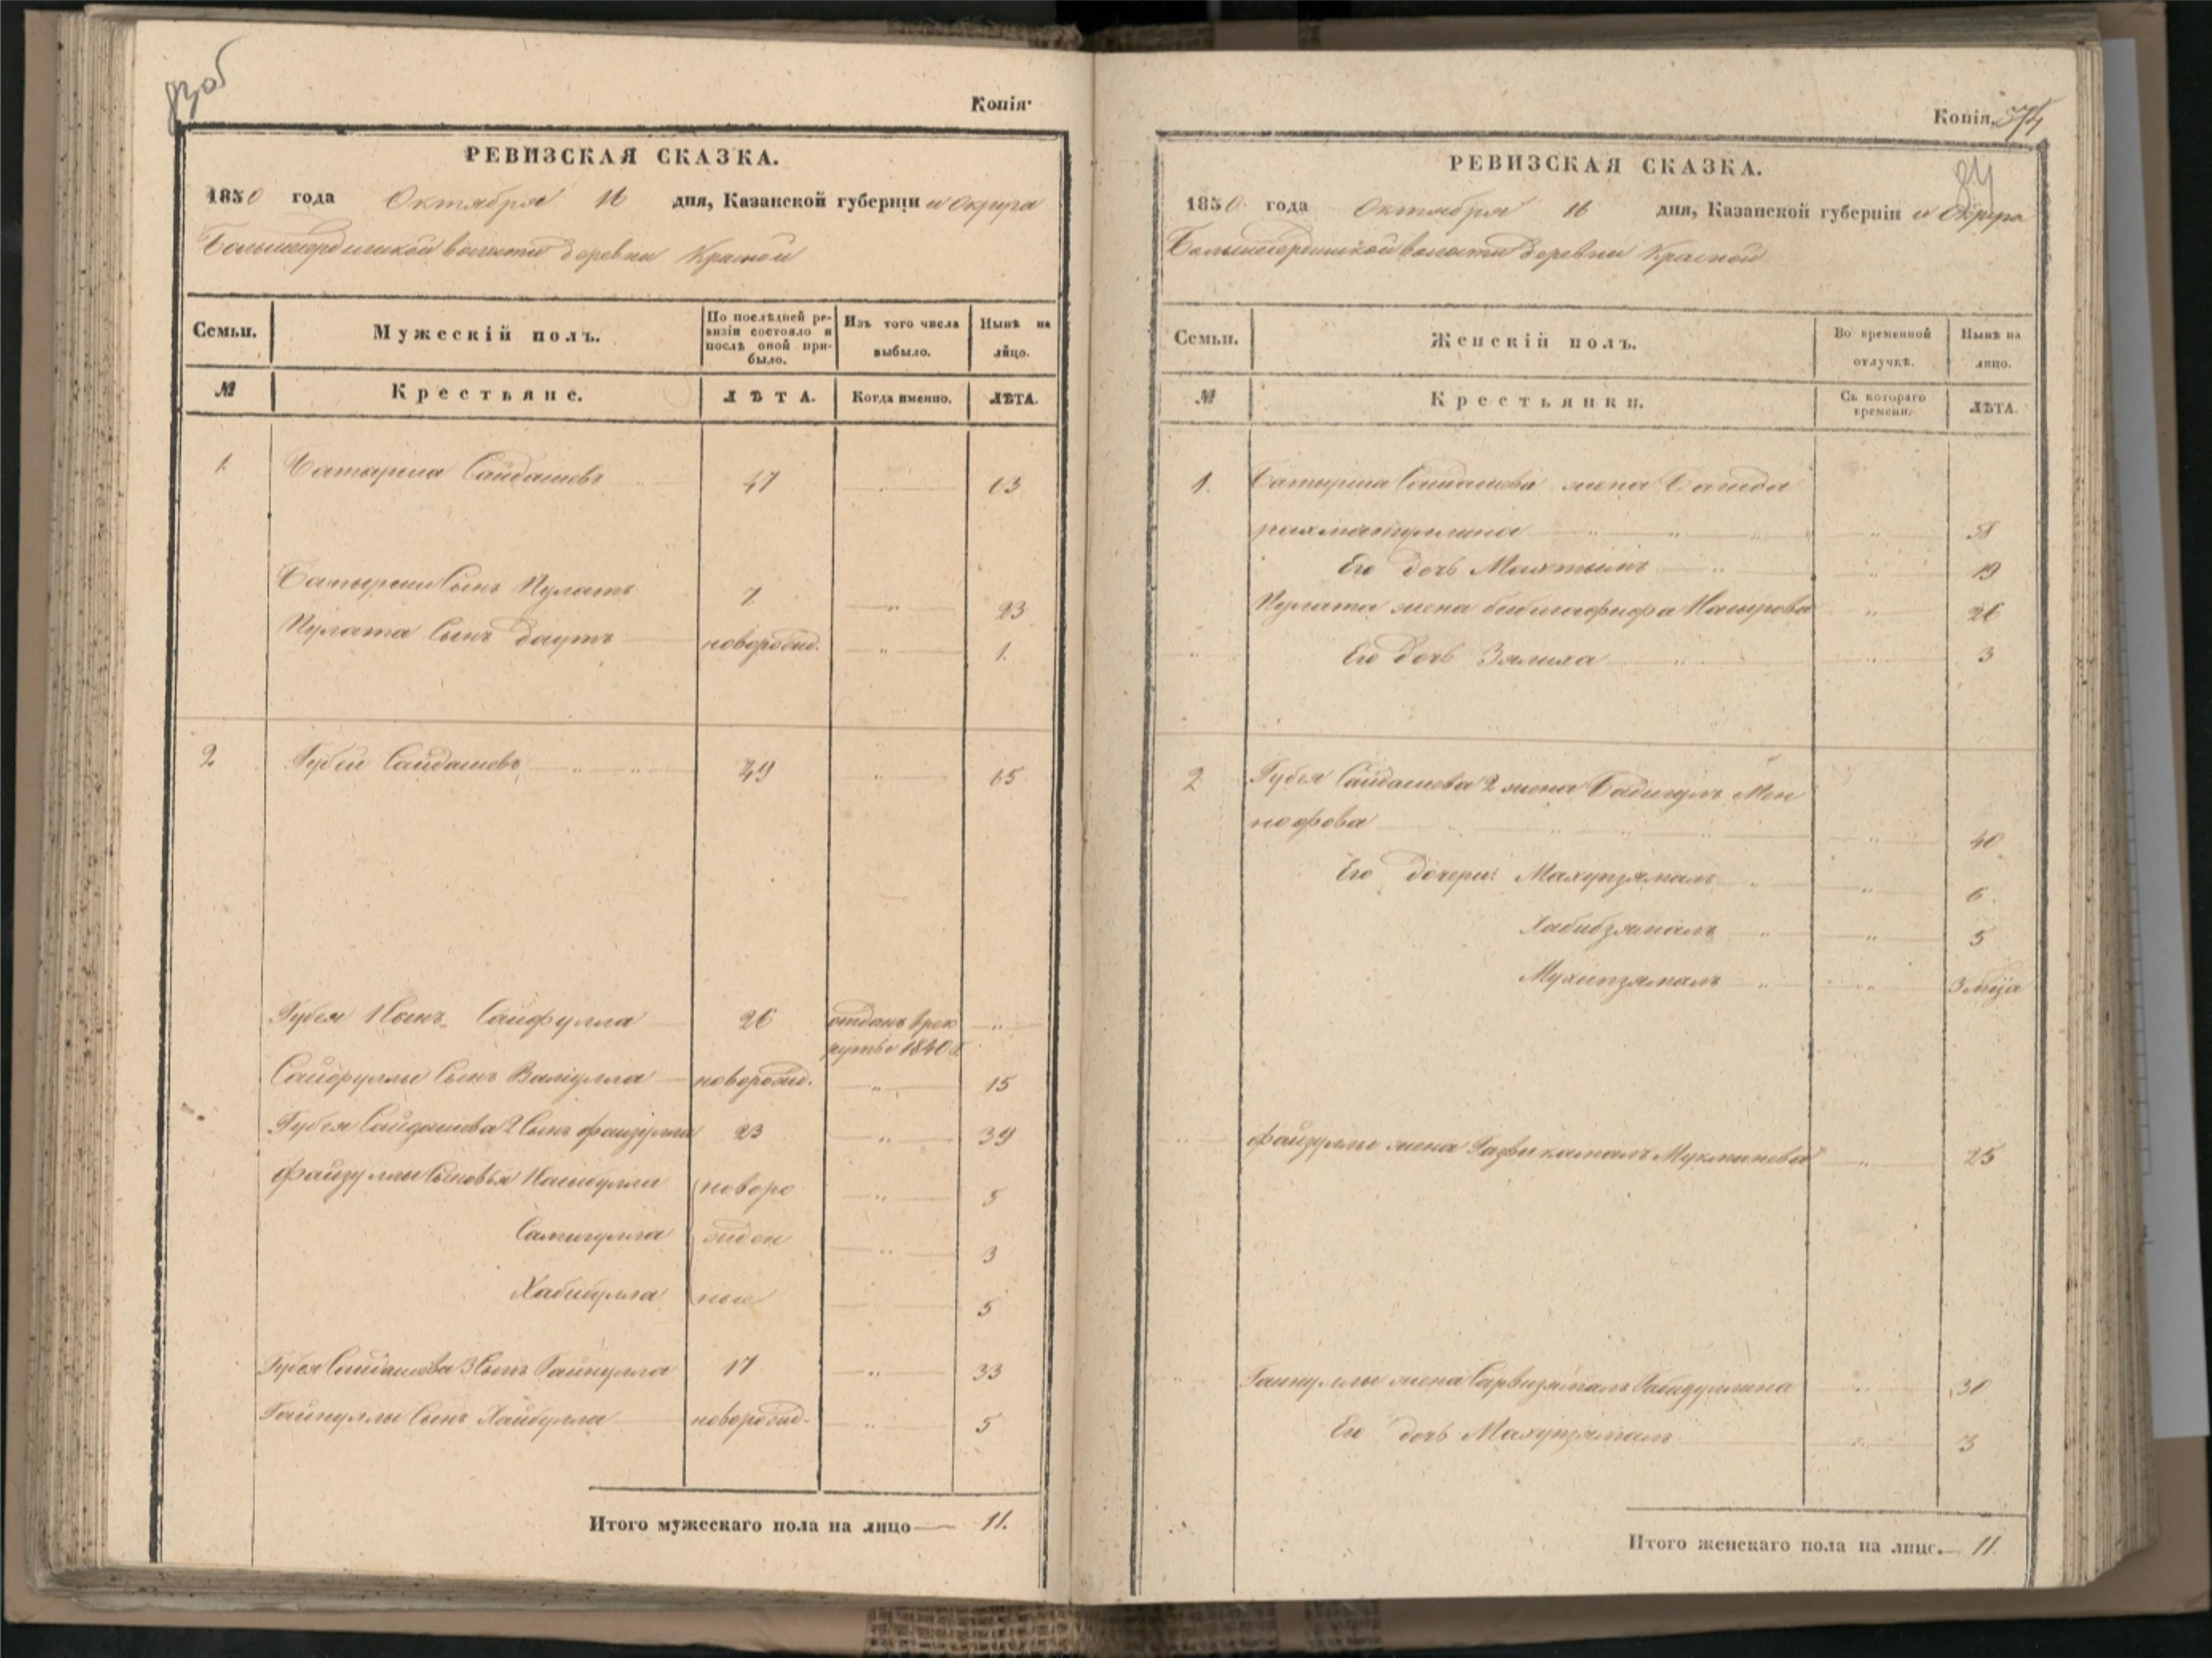 Копія.
РЕВИЗСКАЯ СКАЗКА.
1850 года Октября 16 дня, Казанской губерніи и Округа
волости деревни Красной
Семьи.
Мужескій полъ.
По послѣдней ре-
визіи состояло и
послѣ оной при-
было.
Изъ того числа
выбыло.
Нынѣ на
лицо.
№
Крестьяне.
ЛѢТА.
Когда именно.
ЛѢТА.
1. Батырша Сайдашевъ 47 63
Батырши Сынъ Пулатъ 7. 23
Пулата Сынъ Даутъ новорожд. 1.
2 Губей Сайдашевъ 49 65
Губея 1 Сынъ Сайфулла 26 отданъ врек
рутъ 1840
Сайфуллы Сынъ Валиулла новорожд. 15
Губея Сайдашева 2 Сынъ файзулла 23 39
файзуллы Сыновья Насыбулла новоро 5
Самигулла жден 3
Хабибулла ные 5
Губея Сайдашева 3 Сынъ Гайнулла 17 33
Гайнуллы Сынъ Хайбулла новорожд. 5
Итого мужескаго пола на лицо 11.
Копія.
РЕВИЗСКАЯ СКАЗКА.
1850 года Октября 16 дня, Казанской губерніи и Округа
волости деревни Красной
Семьи.
Женскій полъ.
Во временной
отлучкѣ.
Нынѣ на
лицо.
№
Крестьянки.
Съ котораго
времени.
ЛѢТА.
1. Батырши Сайдашева жена
рахматуллина 38
Его дочь 19
Пулата жена бибигафифа Насырова 26
Его дочь Залиха 3
2 Губея Сайдашева 2 жена Бадигулъ Мен
40
Его дочери: Махупзямалъ 6.
Хабибзямалъ 5
Мухипзямалъ 3
файзуллы жена Мукминева 25
Гайнуллы жена Сарвизямалъ Габидуллина 30
Его дочь Махупзямалъ 3
Итого женскаго пола на лицо. 11.